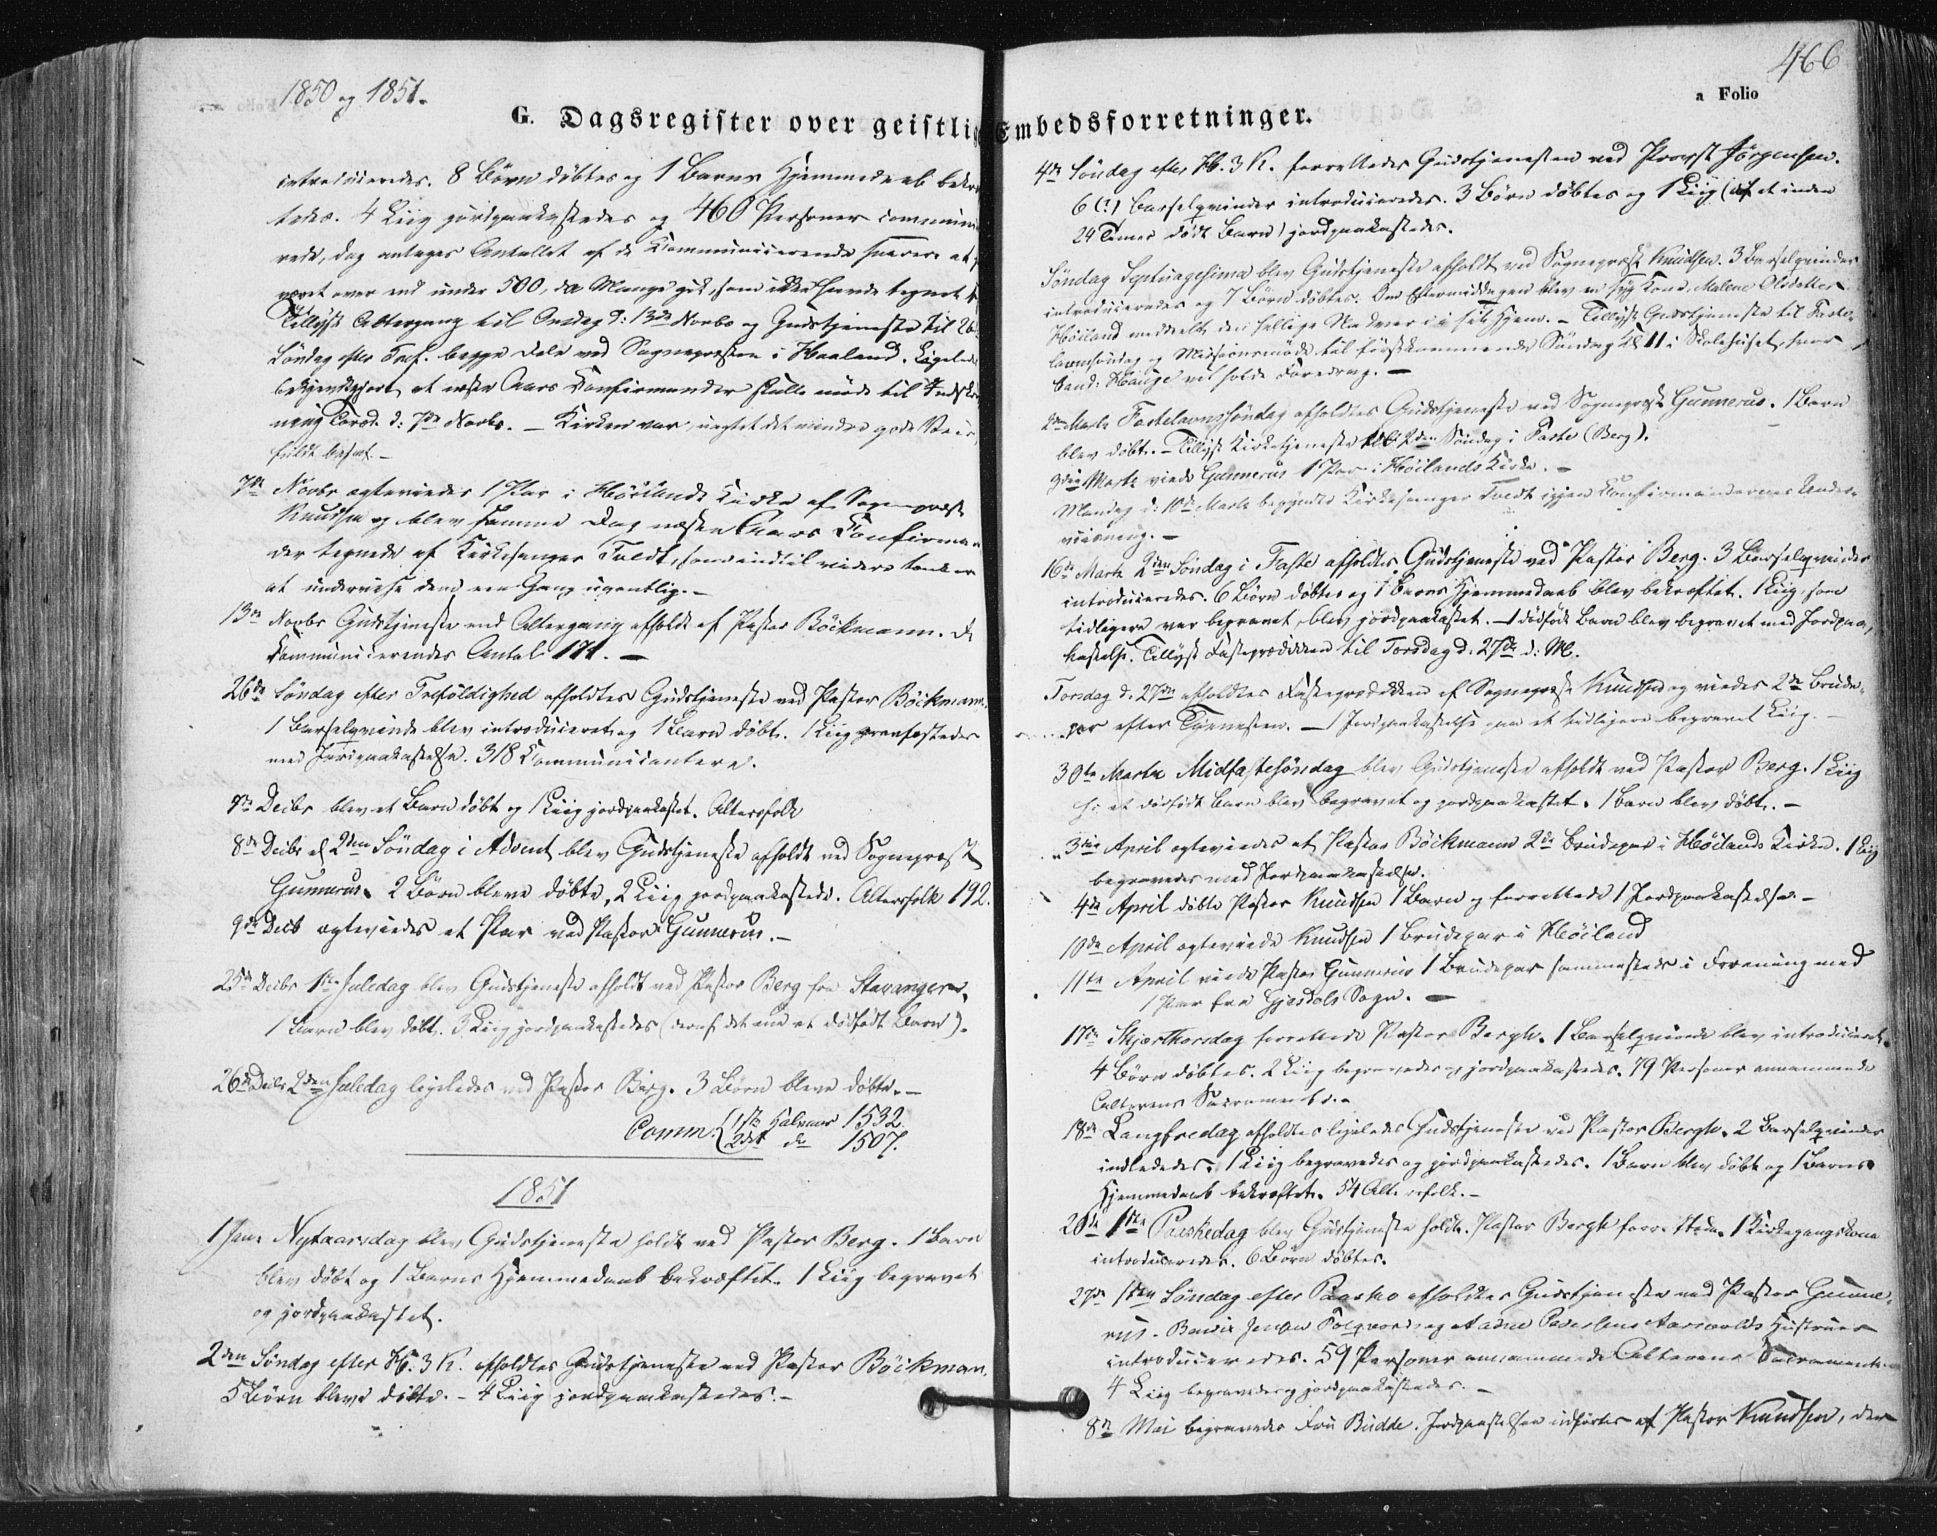 1850 og 1851.
466
a Folio
G. Dagsregister over geistlig Embedsforretninger.
introduceredes. 8 Børn døbtes og 1 Barns Hjemmedaab bekræf
tedes. 4 Liig jordpaakastedes og 460 Personer commun
rede, dog antages Antallet af de Kommunicerende snarere at
været over end under 500, da Mange gik, som ikke havde tegnet
Tillyst Altergang til Onsdag d: 13de Novbr og Gudstjeneste til 26
Søndag efter Tref. begge Dele ved Sognepræsten i Haaland. Ligeledes
bekjendtgjort at næste Aars Konfirmander skulle møde til Indskriv
ning Torsd. d: 7de Novbr. – Kirken var, uagtet det mindre gode Veir,
fuldt besat. –
7de Novbr ægteviedes 1 Par i Høilands Kirke af Sognepræst
Knudsen og blev samme Dag næste Aars Konfirman
der tegnede af Kirkesanger Tvedt, som indtil videre tænker
at undervise dem een Gang ugentlig. –
13de Novbr Gudstjeneste med Altergang afholdt af Pastor Böckmann. De
Kommunicerendes Antal 171. –
26de Søndag efter Trefoldighed afholdtes Gudstjeneste ved Pastor Böckmann.
1 Barselqvinde blev introduceret og 1 Barn døbt. 1 Liig
med Jordpaakastelse. 318 Kommunicantere.
Decbr blev et Barn døbt og 1 Liig jordpaakastet. Altersfolk
8de Decbr 2den Søndag i Advent blev Gudstjeneste afholdt ved Sognepræst
Gunnerus. 2 Børn bleve døbte, 2 Liig jordpaakastede. Altersfolk 192.
9de Decb ægteviedes et Par ved Pastor Gunnerus. –
25de Decbr 1ste Juledag blev Gudstjeneste afholdt ved Pastor Berg fra Stavanger.
1 Barn blev døbt. 3 Liig jordpaakastedes (deraf det ene et dødfødt Barn).
26de Decbr 2den Juledag ligeledes ved Pastor Berg. 3 Børn bleve døbte. –
Comm: 1ste Halvaar 1532.
2det do 1507.
1851
1 Jan. Nytaarsdag blev Gudstjeneste holdt ved Pastor Berg. 1 Barn
blev døbt og 1 Barns Hjemmedaab bekræftet. 1 Liig begravet
og jordpaakastet.
2den Søndag efter H. 3 K. afholdtes Gudstjeneste ved Pastor Böckman.
5 Børn bleve døbte. – 4 Liig jordpaakastedes. –
4de Søndag efter H. 3 K. forrettedes Gudstjenesten ved Provst Jörgensen.
6 (?) Barselqvinder introduceredes. 3 Børn døbtes og 1 Liig (af et inden
24 Timer dødt Barn) jordpaakastedes.
Søndag Septuagesima blev Gudstjeneste afholdt ved Sognepræst Knudsen. 3 Barselqvinder
introduceredes og 7 Børn døbtes. Om Eftermiddagen blev en syg Kone, Malene Olsdatter
Høiland meddeelt den hellige Nadvere i sit Hjem. – Tillyst Gudstjeneste til Faste-
lavnssøndag og Missionsmøde til førstkommende Søndag Kl 11 i Skolehuset, hvor
Cand: Hauge vil holde Foredrag. –
2den Marts Fastelavnssöndag afholdtes Gudstjeneste ved Sognepræst Gunnerus. 1 Barn
blev døbt. – Tillyst Kirketjeneste till 2den Søndag i Faste (Berg).
3die Marts viede Gunnerus 1 Par i Høilands Kirke. –
Mandag d: 10de Marts begyndte Kirkesanger Tvedt igjen Konfirmandernes Under-
viisning. –
16de Marts 2den Søndag i Faste afholdtes Gudstjeneste ved Pastor Berg. 3 Barselqvinder
introduceredes. 6 Børn døbtes og 1 Barns Hjemmedaab blev bekræftet. 1 Liig, som
tidligere var begravet, blev jordpaakastet. – 1 dødfødt Barn blev begravet med Jordpaa-
kastelse. Tillyst Fasteprædiken til Torsdag d: 27de d: M.
Torsdag d. 27de afholdtes Fasteprædiken af Sognepræst Knudsen og viedes 2de Brude-
par efter Tjenesten. – 1 Jordpaakastelse paa et tidligere begravet Liig. –
30te Marts Midfastesöndag blev Gudstjeneste afholdt ved Pastor Berg. 1 Liig
s: et dødfødt Barn blev begravet og jordpaakastet. 1 Barn blev døbt. –
3die April ægteviedes af Pastor Böckmann 2de Brudepar i Høilands Kirke. 1 Liig
begravedes med Jordpaakastelse.
4de April døbte Pastor Knudsen 1 Barn og forrettede 1 Jordpaakastelse. –
10de April ægteviede Knudsen 1 Brudepar i Høiland
11te April viede Pastor Gunnerus 1 Brudepar sammesteds i Forening med
1 Par fra Gjesdals Sogn. –
17de Skjærthorsdag forrettede Pastor Bergh. 1 Barselqvinde blev introduceret.
4 Børn døbtes. 2 Liig begravedes og jordpaakastedes. 79 Personer annammede
Alterens Sacramente. –
18de Langfredag afholdtes ligeledes Gudstjeneste ved Pastor Bergh. 2 Barselqvinder
indledede. 1 Liig begravedes og jordpaakastedes. 1 Barn blev døbt og 1 Barns
Hjemmedaab bekræftet. 54 Altersfolk. –
20de 1ste Paaskedag blev Gudstjeneste holdt. Pastor Bergh forrettede. 1 Kirkegangskone
introduceredes. 6 Børn døbtes.
27de 1ste Søndag efter Paaske afholdtes Gudstjeneste ved Pastor Gunne-
rus. Jonsen og Aadne Pedersens Hustruer
introduceredes. 59 Personer annammede Alterens Sacramente.
4 Liig begravedes og jordpaakastedes. –
8de Mai begravedes Fru Budde. Jordpaakastelsen udførtes af Pastor Knudsen, der